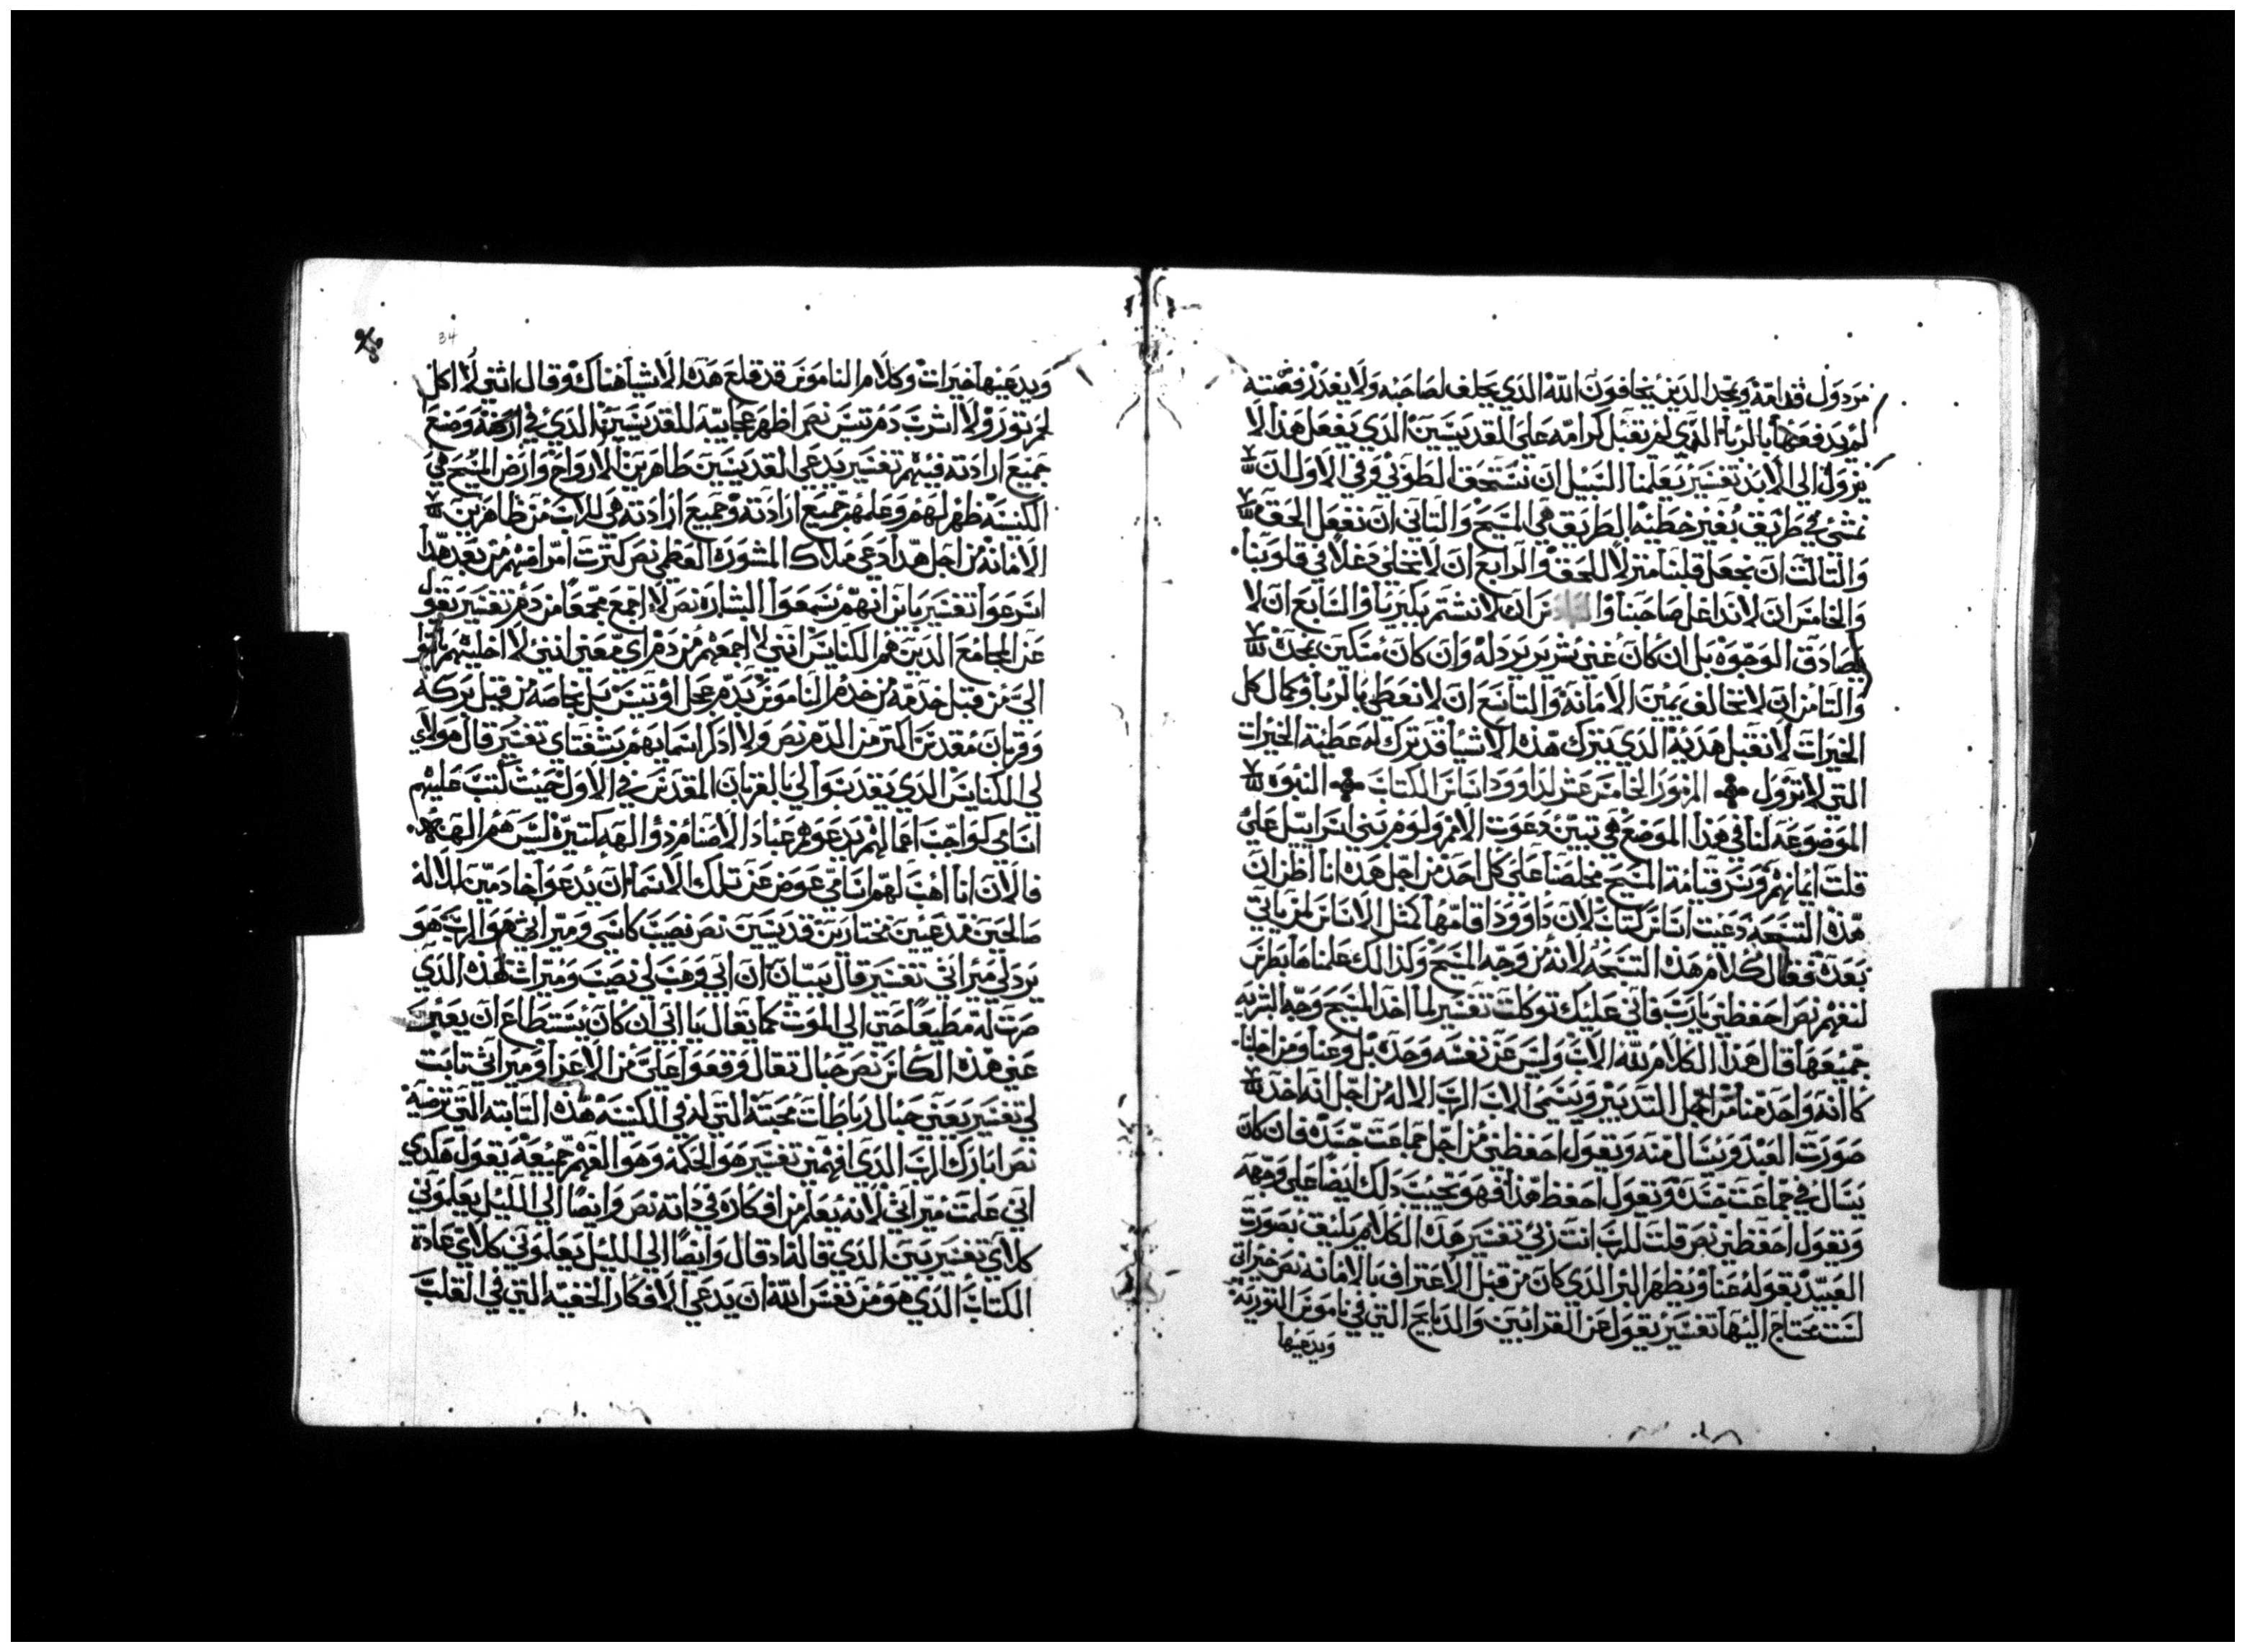 مردول قدامه ويمجد الذين يخافون الله الذي يحلف لصاحبه ولا يغدر فضته
لم يدفعها بالربا الذي لم يقبل كرامه علي القديسين الذي يفعل هذا لا
يزول الي الابد تفسير يعلمنا السبيل ان نستحق الطوبي وفي الاول ان
نمشي في طريق بغير خطيه الطريق هي المسيح والتاني ان نفعل الحق
والتالت ان نجعل قلبنا منزلا للحق والرابع ان لا نخلي دغلا في قلوبنا
والخامس ان لا ندا غل صاحبنا وال ان لا نشتم بكبريا والسابع ان لا
نصادق الوجوه بل ان كان غني شرير نردله وان كان مسكين نمجده
والتامن ان لا نخالف يمين الامانه والتاسع ان لا نعطي بالربا وكمال كل
الخيرات لا نقبل هديه الذي يترك هذه الاشيا قد ترك له عطيه الخيرات
التي لا تزول المزمور الخامس عشر لداوود اساس الكتاب النبوه
الموضوعه لنا في هذا الموضع هي تبين دعوت الامم ولوم بني اسراييل علي
قلت ايمانهم وسر قيامة المسيح مخلصنا علي كل احد من اجل هده انا اظن ان
هده التسبحه دعيت اساس كتاب لان داوود اقامها كمثل الاساس لمن ياتي
بعده فقال كلام هذه التسبحه لانه من وجه المسيح وكذالك علمناها بطرس
لنفهم نص احفظني يارب فاني عليك توكلت تفسير لما اخد المسيح وجه البريه
جميعها قال هذا الكلام لله الاب وليس عن نفسه وحده بل وعنا ومن اجلنا
كانه واحد منا من اجل التدبير ويسمي الاب الرب الاله من اجل انه اخد
صورت العبد ويسال منه ويقول احفظني من اجل جماعت جسده فان كان
يسال في جماعت جسده ويقول احفظ هذا فهو يحسب ذلك ايضا علي وجهه
ويقول احفظني نص قلت للرب انت ربي تفسير هده الكلام يليق بصورت
العبيد بقوله عنا ويظهر البر الذي كان من قبل الاعتراف بالامانه نص خيراتي
لست محتاج اليها تفسير يقول عن القرابين والدبايح التي في ناموس التوريه
ويدعيها
34
ويدعيها خيرات وكلام الناموس قد قلع هذه الاشيا هناك وقال انني لا اكل
لحم تور ولا اشرب دم تيس نص اظهر عجايبه للقديسين الذي في ارضه وضع
جميع ارادته فيهم تفسير يدعي القديسين طاهرين الارواح وارض المسيح هي
الكنيسه ظهر لهم وعلمهم جميع ارادته وجميع ارادته هي للاب من ظاهرين
الامانه من اجل هدا دعي ملاك المشوره العظمي نص كترت امراضهم من بعد هدا
اسرعوا تفسير يا من انهم سمعوا البشاره نص لا اجمع مجمعا من دم تفسير يقول
عن المجامع الدين هم الكنايس انني لا اجمعهم من دم اي معني انني لا اخليهم ياتو
الي من قبل خدمه من خدم الناموس بدم عجل او تيس بل بخاصه من قبل بركه
وقربان مقدس اكتر من الدم نص ولا ادكر اسمايهم بشفتاي تفسير قال هولاي
لي الكنايس الدي يقدسوا لي بالقربان المقدس في الاول حيت كتب عليهم
اسامي كواجب اعمالهم يدعوهم عباد الاصنام دو الهه كتيره ليس هم الهه
فالان انا اهب لهم اسامي عوض عن تلك الاسما ان يدعوا خادمين للاله
صالحين مدعيين مختارين قديسين نص نصيب كاسي وميراتي هو الرب هو
يرد لي ميراتي تفسير قال ببيان ان ابي وهب لي نصيب وميرات لهذه الذي
صرت له مطيعا حتي الي الموت كما يقال يا ابي ان كان يستطاع ان يعبر
عني هده الكاس نص حبال تقال وقعوا علي من الاعزا وميراتي تابت
لي تفسير يعني حبال رباطات محبته التي له في الكنيسه هذه التابته التي ترضيه
نص ابارك الرب الذي افهمني تفسير هو الحكمه وهو الفهم جميعه يقول هكدي
اني علمت ميراتي لانه يعلم من افكاره في داته نص وايضا الي الليل يعلموني
كلاي تفسير بين الذي قاله اد قال وايضا الي الليل يعلموني كلاي عادة
الكتاب الذي هو من نفس الله ان يدعي الافكار الخفيه التي في القلب